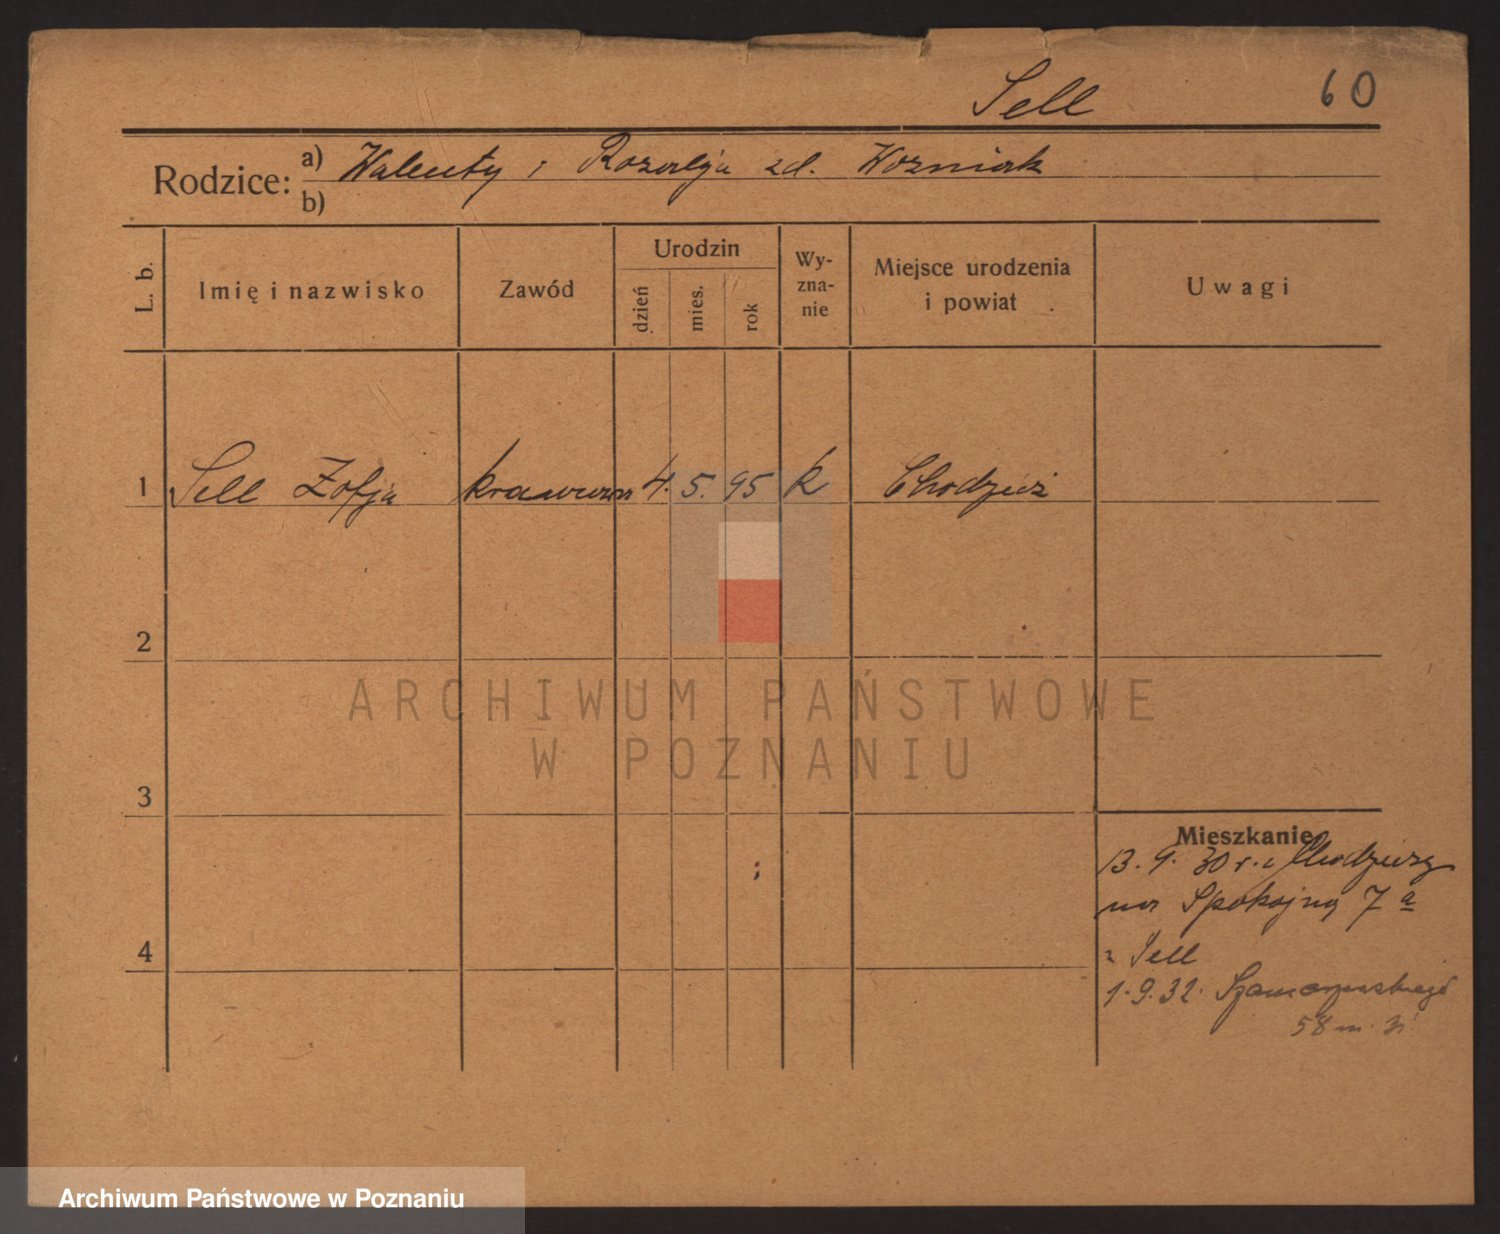 Sell
60
Rodzice: a) Walenty i Rozalja zd. Wozniak
b)
L. b.
Imię i nazwisko
Zawód
Urodzin
dzień
mies.
rok
Wy-
zna-
nie
Miejsce urodzenia
i powiat
Uwagi
1 Sell Zofja krawcowa 4. 5. 95 k Chodzież
2
ARCHIWUM PAŃSTWOWE
W POZNANIU
3
Mieszkanie
13. 9. 30 r. z Chodzieży
na Spokojną 7 a
z Sell
4
1.9.32. Szamarzewskiego
58 m.
Archiwum Państwowe w Poznaniu